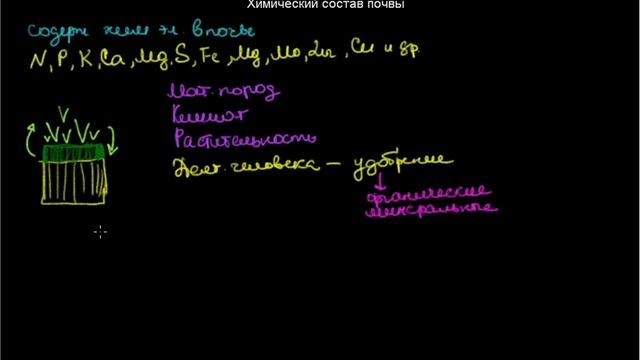 Химический состав почвы
содерж хим эл. в почве
N, P, K, Ca, Mg, S, Fe, Mg, Mo, Zn, Cu и др.
Мат. пород
Климат
Растительность
Деят. человека – удобрение
органические
минеральные